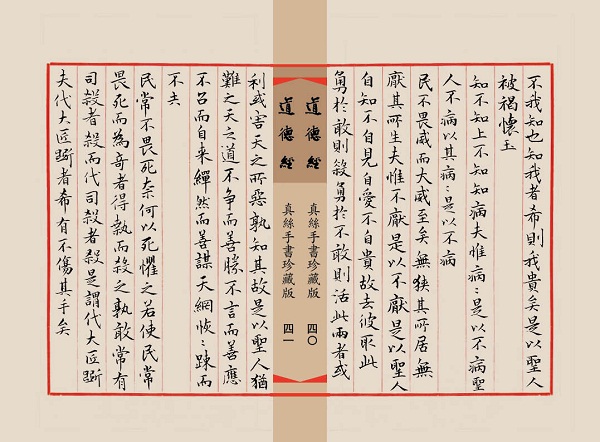 不我知也知我者希則我貴矣是以聖人
被褐懷玉
知不知上不知知病夫惟病〻是以不病聖
人不病以其病〻是以不病
民不畏威而大威至矣無狹其所居無
厭其所生夫惟不厭是以不厭是以聖人
自知不自見自愛不自貴故去彼取此
勇於敢則殺勇於不敢則活此兩者或
道德經 真絲手書珍藏版 四〇
道德經 真絲手書珍藏版 四一
利或害天之所惡孰知其故是以聖人猶
難之天之道不爭而善勝不言而善應
不召而自来繟然而善謀天網恢〻踈而
不失
民常不畏死奈何以死懼之若使民常
畏死而為奇者得執而殺之孰敢常有
司殺者殺而代司殺者殺是謂代大匠斲
夫代大匠斲者希有不傷其手矣